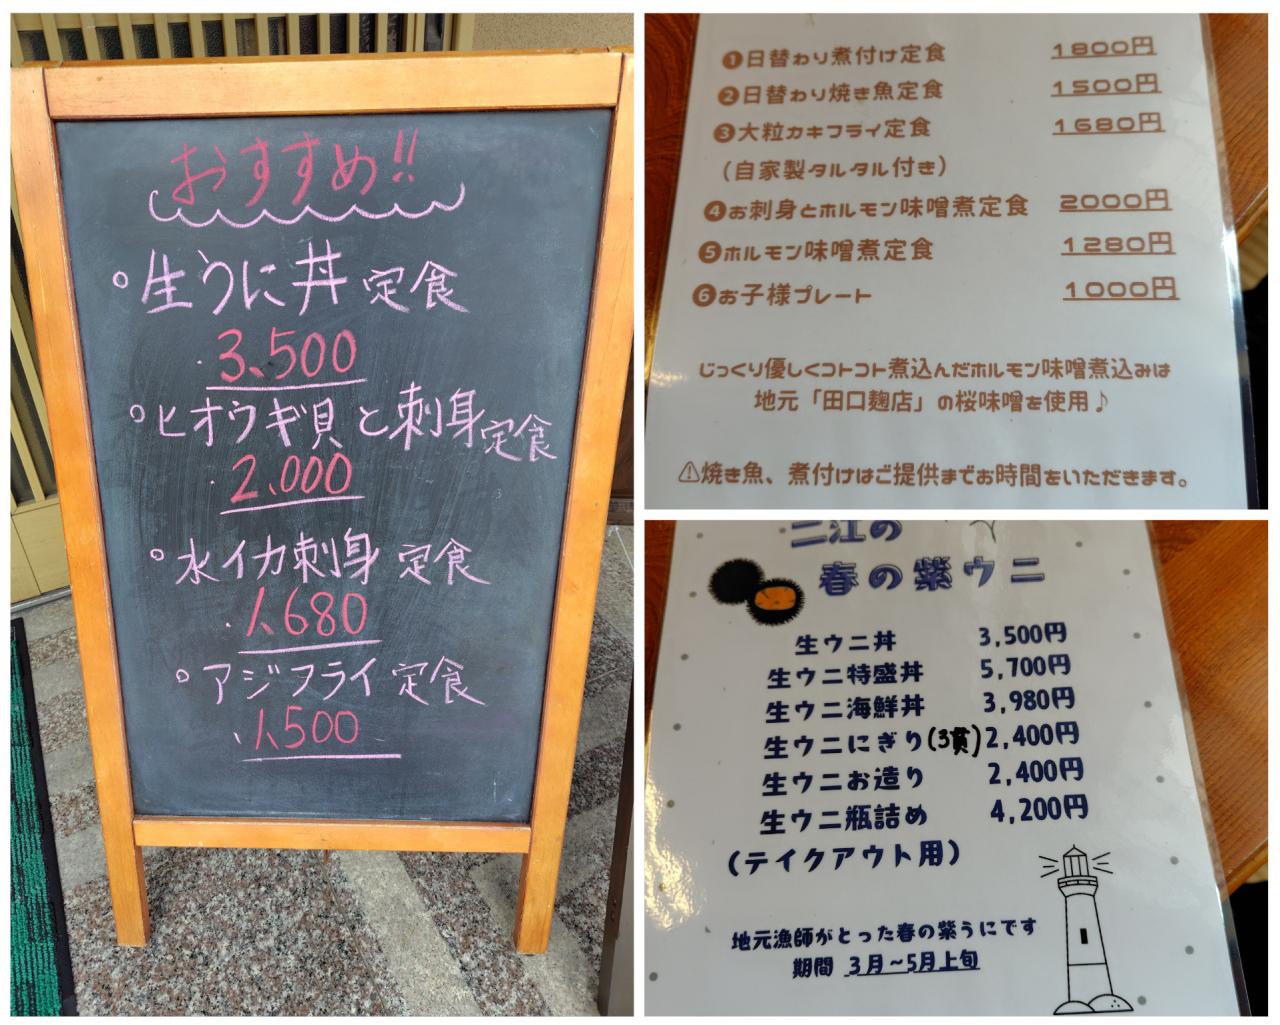 おすすめ!!
○生うに丼 定食
・3、500
○ヒオウギ貝と刺身定食
・2、000
○水イカ刺身 定食
・1、680
○アジフライ定食
、1、500
❶日替わり煮付け定食 1800円
❷日替わり焼き魚定食 1500円
❸大粒カキフライ定食 1680円
（自家製タルタル付き）
❹お刺身とホルモン味噌煮定食 2000円
❺ホルモン味噌煮定食 1280円
❻お子様プレート 1000円
じっくり優しくコトコト煮込んだホルモン味噌煮込みは
地元「田口麹店」の桜味噌を使用♪
⚠焼き魚、煮付けはご提供までお時間をいただきます。
二江の
春の紫ウニ
生ウニ丼 3,500円
生ウニ特盛丼 5,700円
生ウニ海鮮丼 3,980円
生ウニにぎり(3貫) 2,400円
生ウニお造り 2,400円
生ウニ瓶詰め 4,200円
（テイクアウト用）
地元漁師がとった春の紫うにです
期間 3月~5月上旬